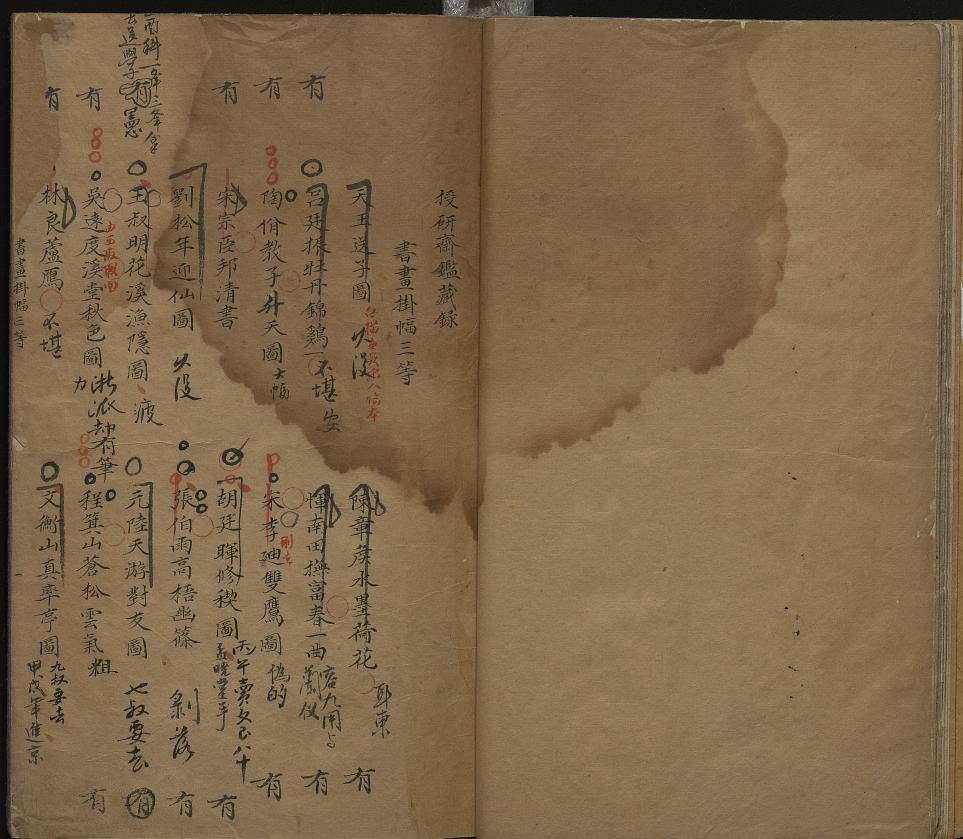 授研齋鑑藏録
書畫掛幅三等
天王送子圖 火没
陳章侯水墨荷花 取東
有
有
呂廷振牡丹錦鷄 不堪
惲南田撫富春一曲
有
有
陶佾教子升天圖 大幅
宋李廸雙鷹圖 偽的
刪去
有
有
宋宗臣邦清書
胡廷暉修禊圖
丙午賣
有
劉松年迎仙圖 火没
張伯雨高梧幽篠 剝落
有
有
王叔明花溪漁隱圖 疲
元陸天游對友圖 七叔要去
有
有
吳遠度溪堂秋色圖 浙派却有筆力
程箕山蒼松雲氣 粗
有
有
林良蘆鴈 不堪
文衡山真率亭圖 九叔要去
甲戌年進京
書畫掛幅三等